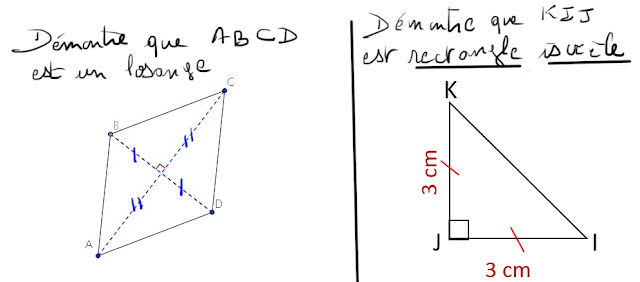 Démontre que ABCD
est un losange
C
B
D
A
Démontre que KIJ
est rectangle isocèle
K
3 cm
J
I
3 cm